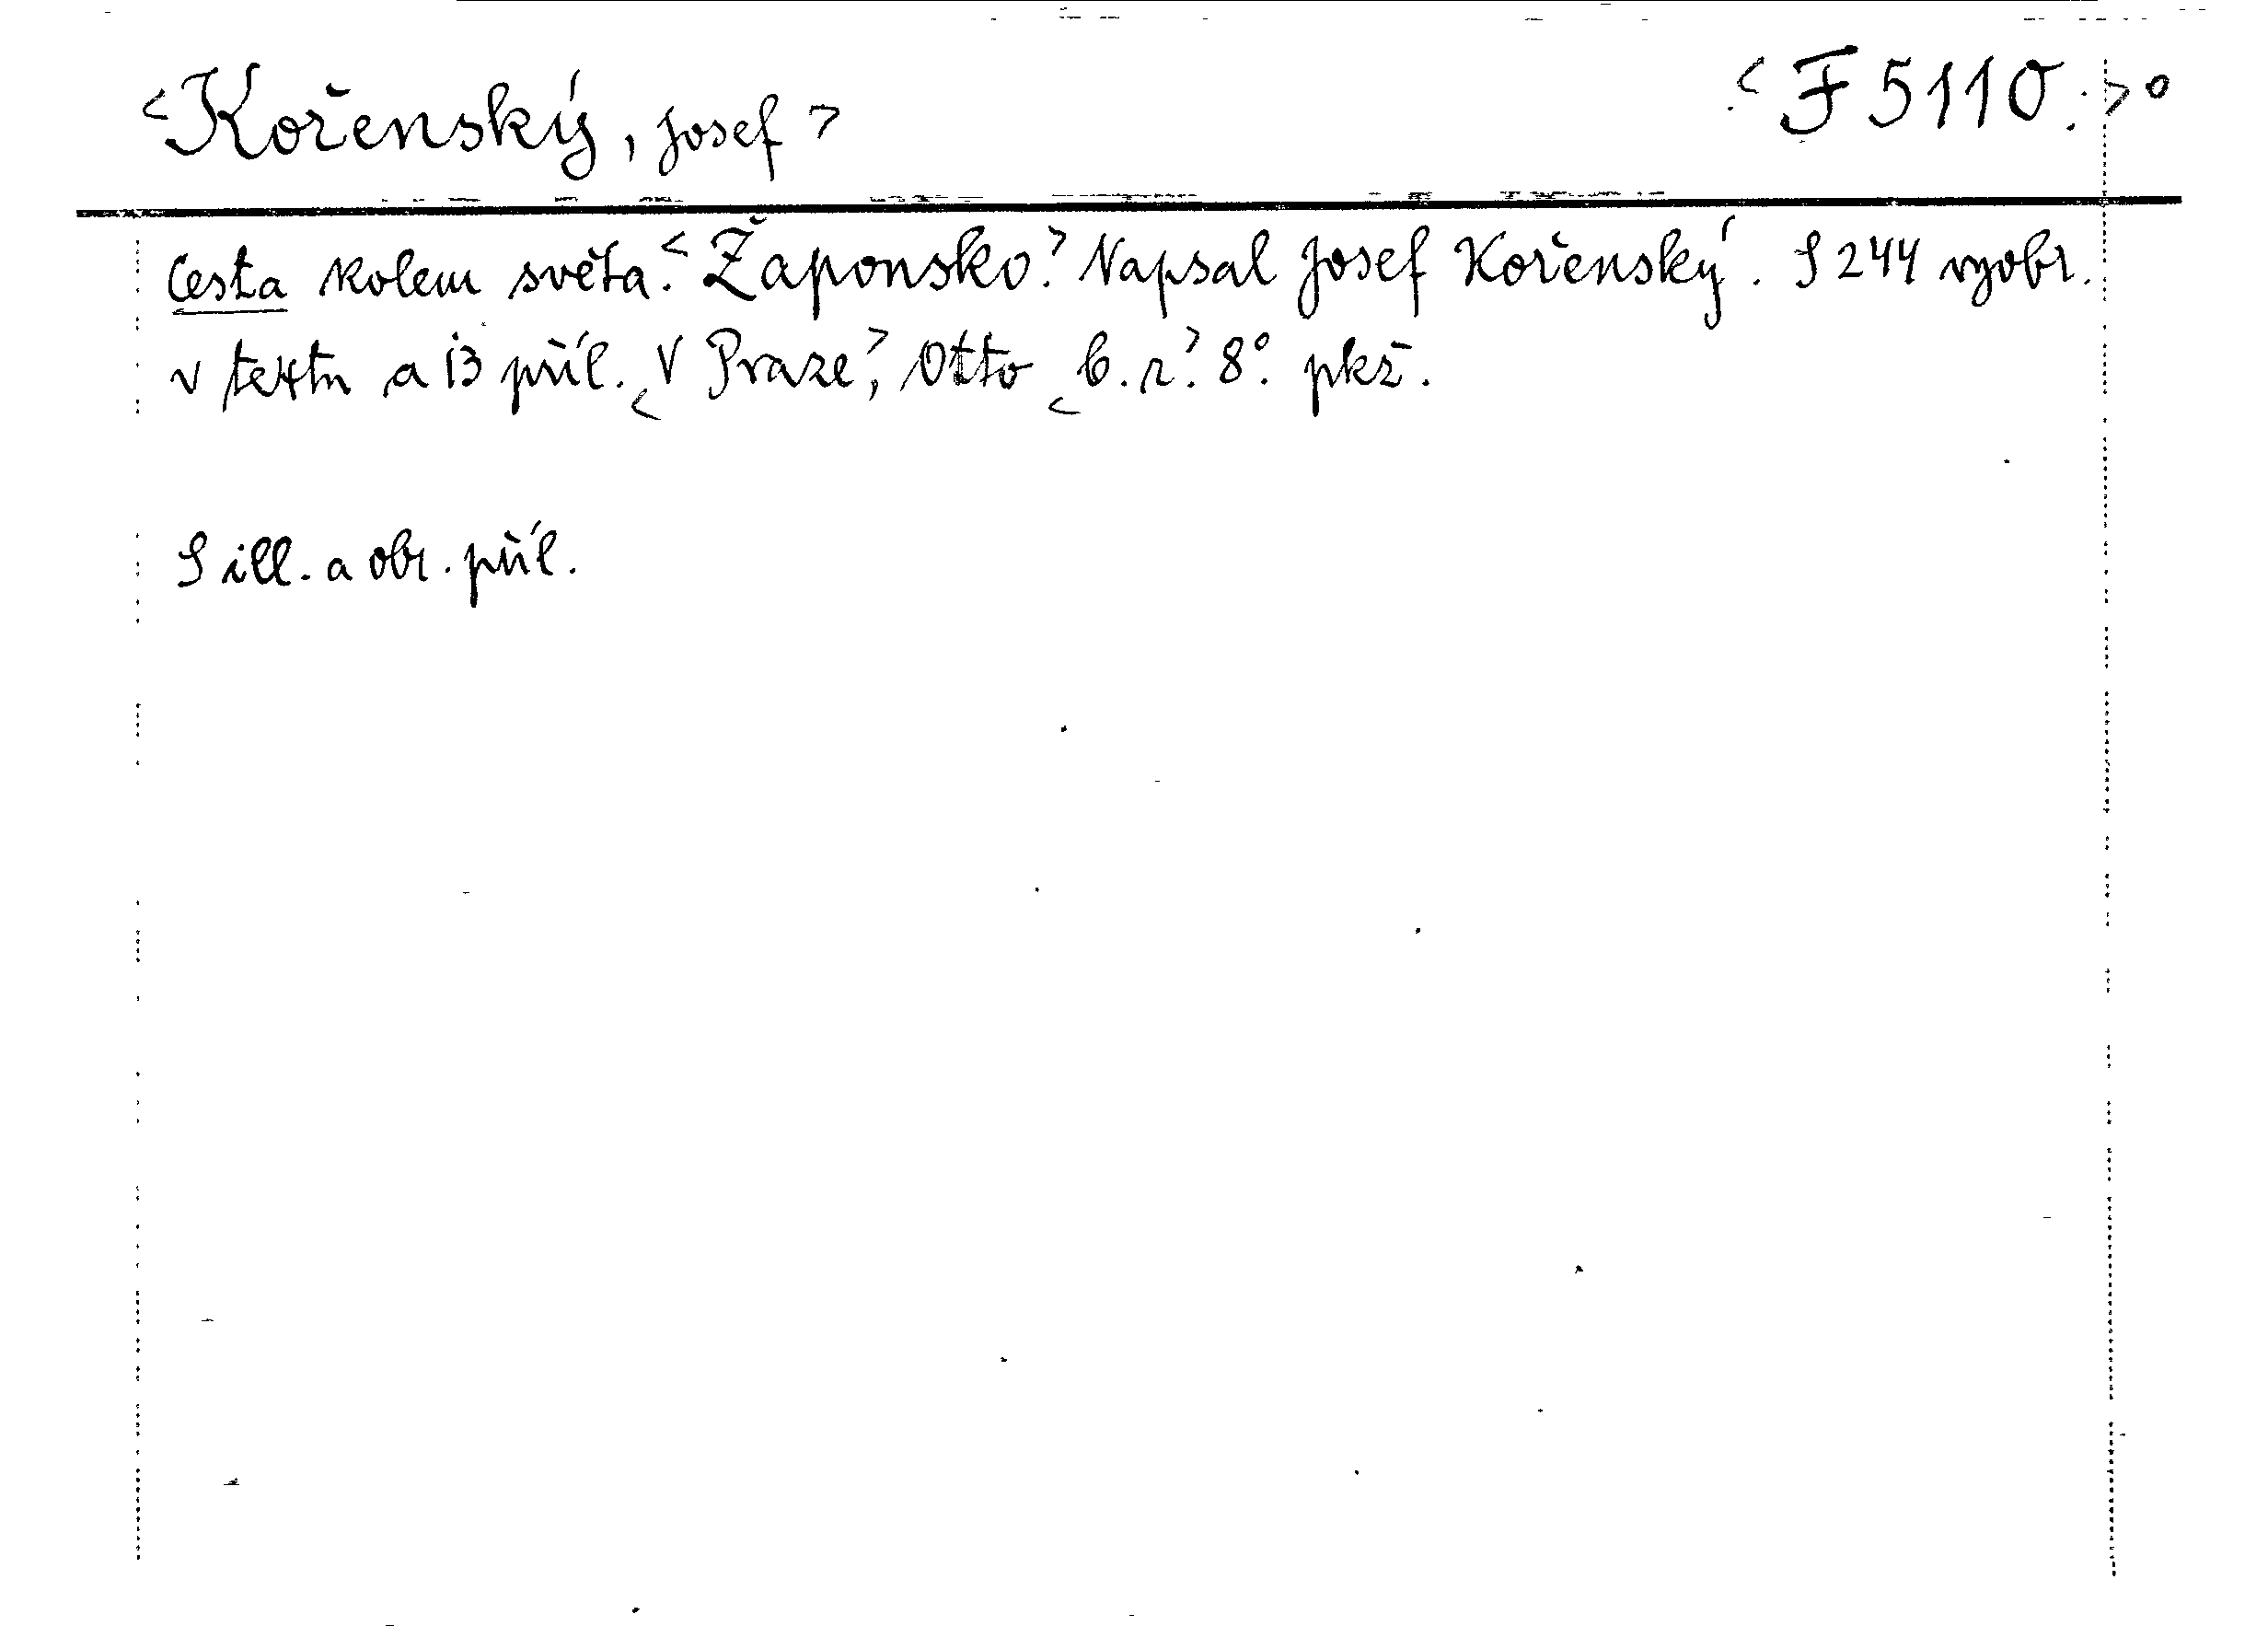 <Kořenský, Josef> <F 5110.>°
Cesta kolem světa.<Žaponsko.> Napsal Josef Kořenský. S 244 vyobr.
v textu a 13 příl. <V Praze>, Otto <b. r.> 8°. pkž.
S ill. a obr. příl.